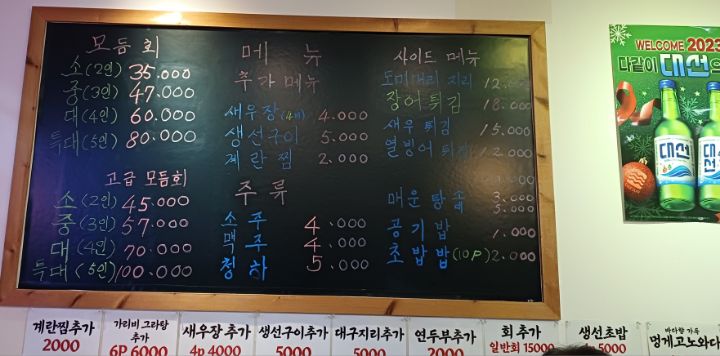 모듬회
소(2인) 35.000
중(3인) 47.000
대(4인) 60.000
특대(5인) 80.000
고급 모듬회
소(2인) 45.000
중(3인) 57.000
대(4인) 70.000
특대(5인) 100.000
메뉴
추가 메뉴
새우장(4개) 4.000
생선구이 5.000
계란찜 2.000
주류
소주 4.000
맥주 4.000
청하 5.000
사이드 메뉴
도미대리 지리 12.000
장어튀김 18.000
새우튀김 15.000
열빙어튀김 12.000
매운탕 소 3.000
대 5.000
공기밥 1.000
초밥밥(10P) 2.000
WELCOME 2023
다같이 대선으
대선
대선
계란찜추가
2000
가리비 그라탕
추가
6P 6000
새우장 추가
4p 4000
생선구이추가
5000
대구지리추가
5000
연두부추가
2000
회 추가
일반회 15000
생선초밥
5000
바다향 가득
멍게고노와다